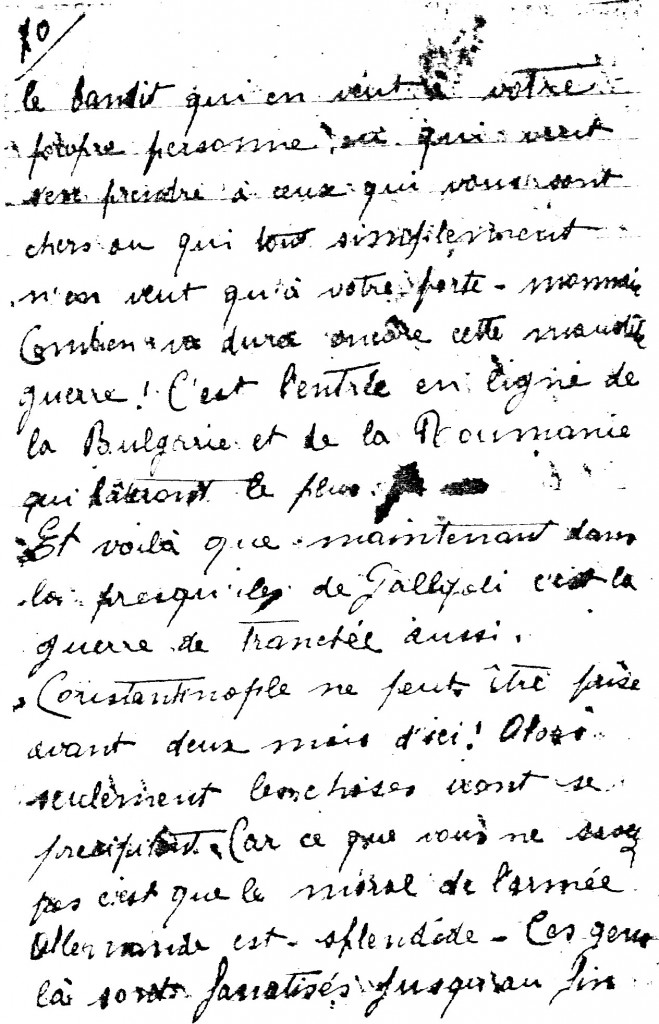 10/
le bandit qui en veut à votre
propre personne, ou qui veut
s'en prendre à ceux qui vous sont
chers ou qui tout simplement
n'en veut qu'à votre porte-monnaie
Combien va durer encore cette maudite
guerre! C'est l'entrée en ligne de
la Bulgarie et de la Roumanie
qui le plus.
Et voilà que maintenant dans
la presqu'ile de Gallipoli c'est la
guerre de tranchée aussi.
Constantinople ne peut être prise
avant deux mois d'ici! Alors
seulement les choses vont se
precipiter. Car ce que vous ne savez
pas c'est que le moral de l'armée
Allemande est splendide - Ces gens
là sont fanatisés jusqu'au fin